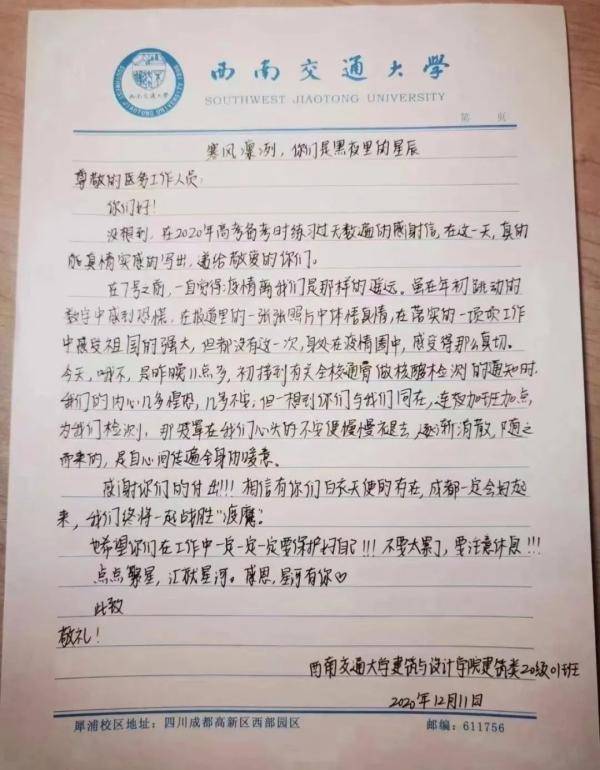 西南交通大学
SOUTHWEST JIAOTONG UNIVERSITY
第 页
寒风凛冽，你们是黑夜里的星辰
尊敬的医务工作人员：
你们好！
没想到，在2020年高考备考时练习过无数遍的感谢信，在这一天，真的
能真情实感的写出，递给敬爱的你们。
在7号之前，一直觉得疫情离我们是那样的遥远。虽在年初跳动的
数字中感到恐慌，在报道里的一张张照片中体悟真情，在落实的一项项工作
中感受祖国的强大，但都没有这一次，身处在疫情圈中，感受得那么真切。
今天，哦不，是昨晚11点多，初接到有关全校通宵做核酸检测的通知时，
我们的内心几多惶恐，几多不安；但一想到你们与我们同在，连夜加班加点，
为我们检测，那笼罩在我们心头的不安便慢慢褪去，逐渐消散，随之
而来的，是自心间传遍全身的暖意。
感谢你们的付出！！！相信有你们白衣天使的存在，成都一定会好起
来，我们终将一起战胜“疫魔”。
也希望你们在工作中一定一定一定要保护好自己！！！不要太累了，要注意休息！！！
点点繁星，汇成星河。感恩，星河有你♡
此致
敬礼！
西南交通大学建筑与设计学院建筑类20级01班
2020年12月11日
犀浦校区地址：四川成都高新区西部园区 邮编：611756